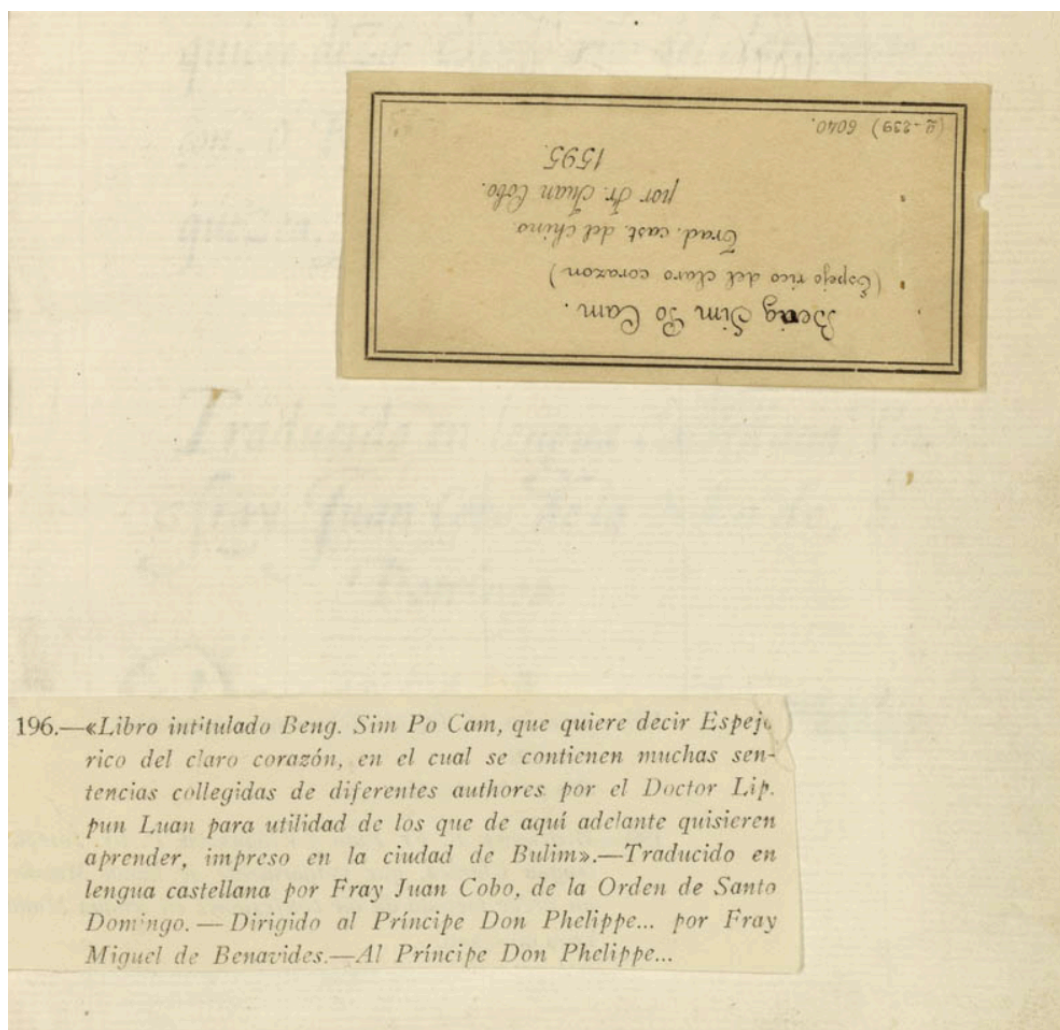 Beng Sim Po Cam.
(Espejo rico del claro corazon)
Trad. cast. del chino
por Fr. Juan Cobo.
1595.
(2-239) 6040.
Traducido en lengua
fray Juan Cobo de la
196.—«Libro intitulado Beng. Sim Po Cam, que quiere decir Espejo
rico del claro corazón, en el cual se contienen muchas sen-
tencias collegidas de diferentes authores por el Doctor Lip.
pun Luan para utilidad de los que de aquí adelante quisieren
aprender, impreso en la ciudad de Bulim».—Traducido en
lengua castellana por Fray Juan Cobo, de la Orden de Santo
Domingo. — Dirigido al Príncipe Don Phelippe... por Fray
Miguel de Benavides.—Al Príncipe Don Phelippe...